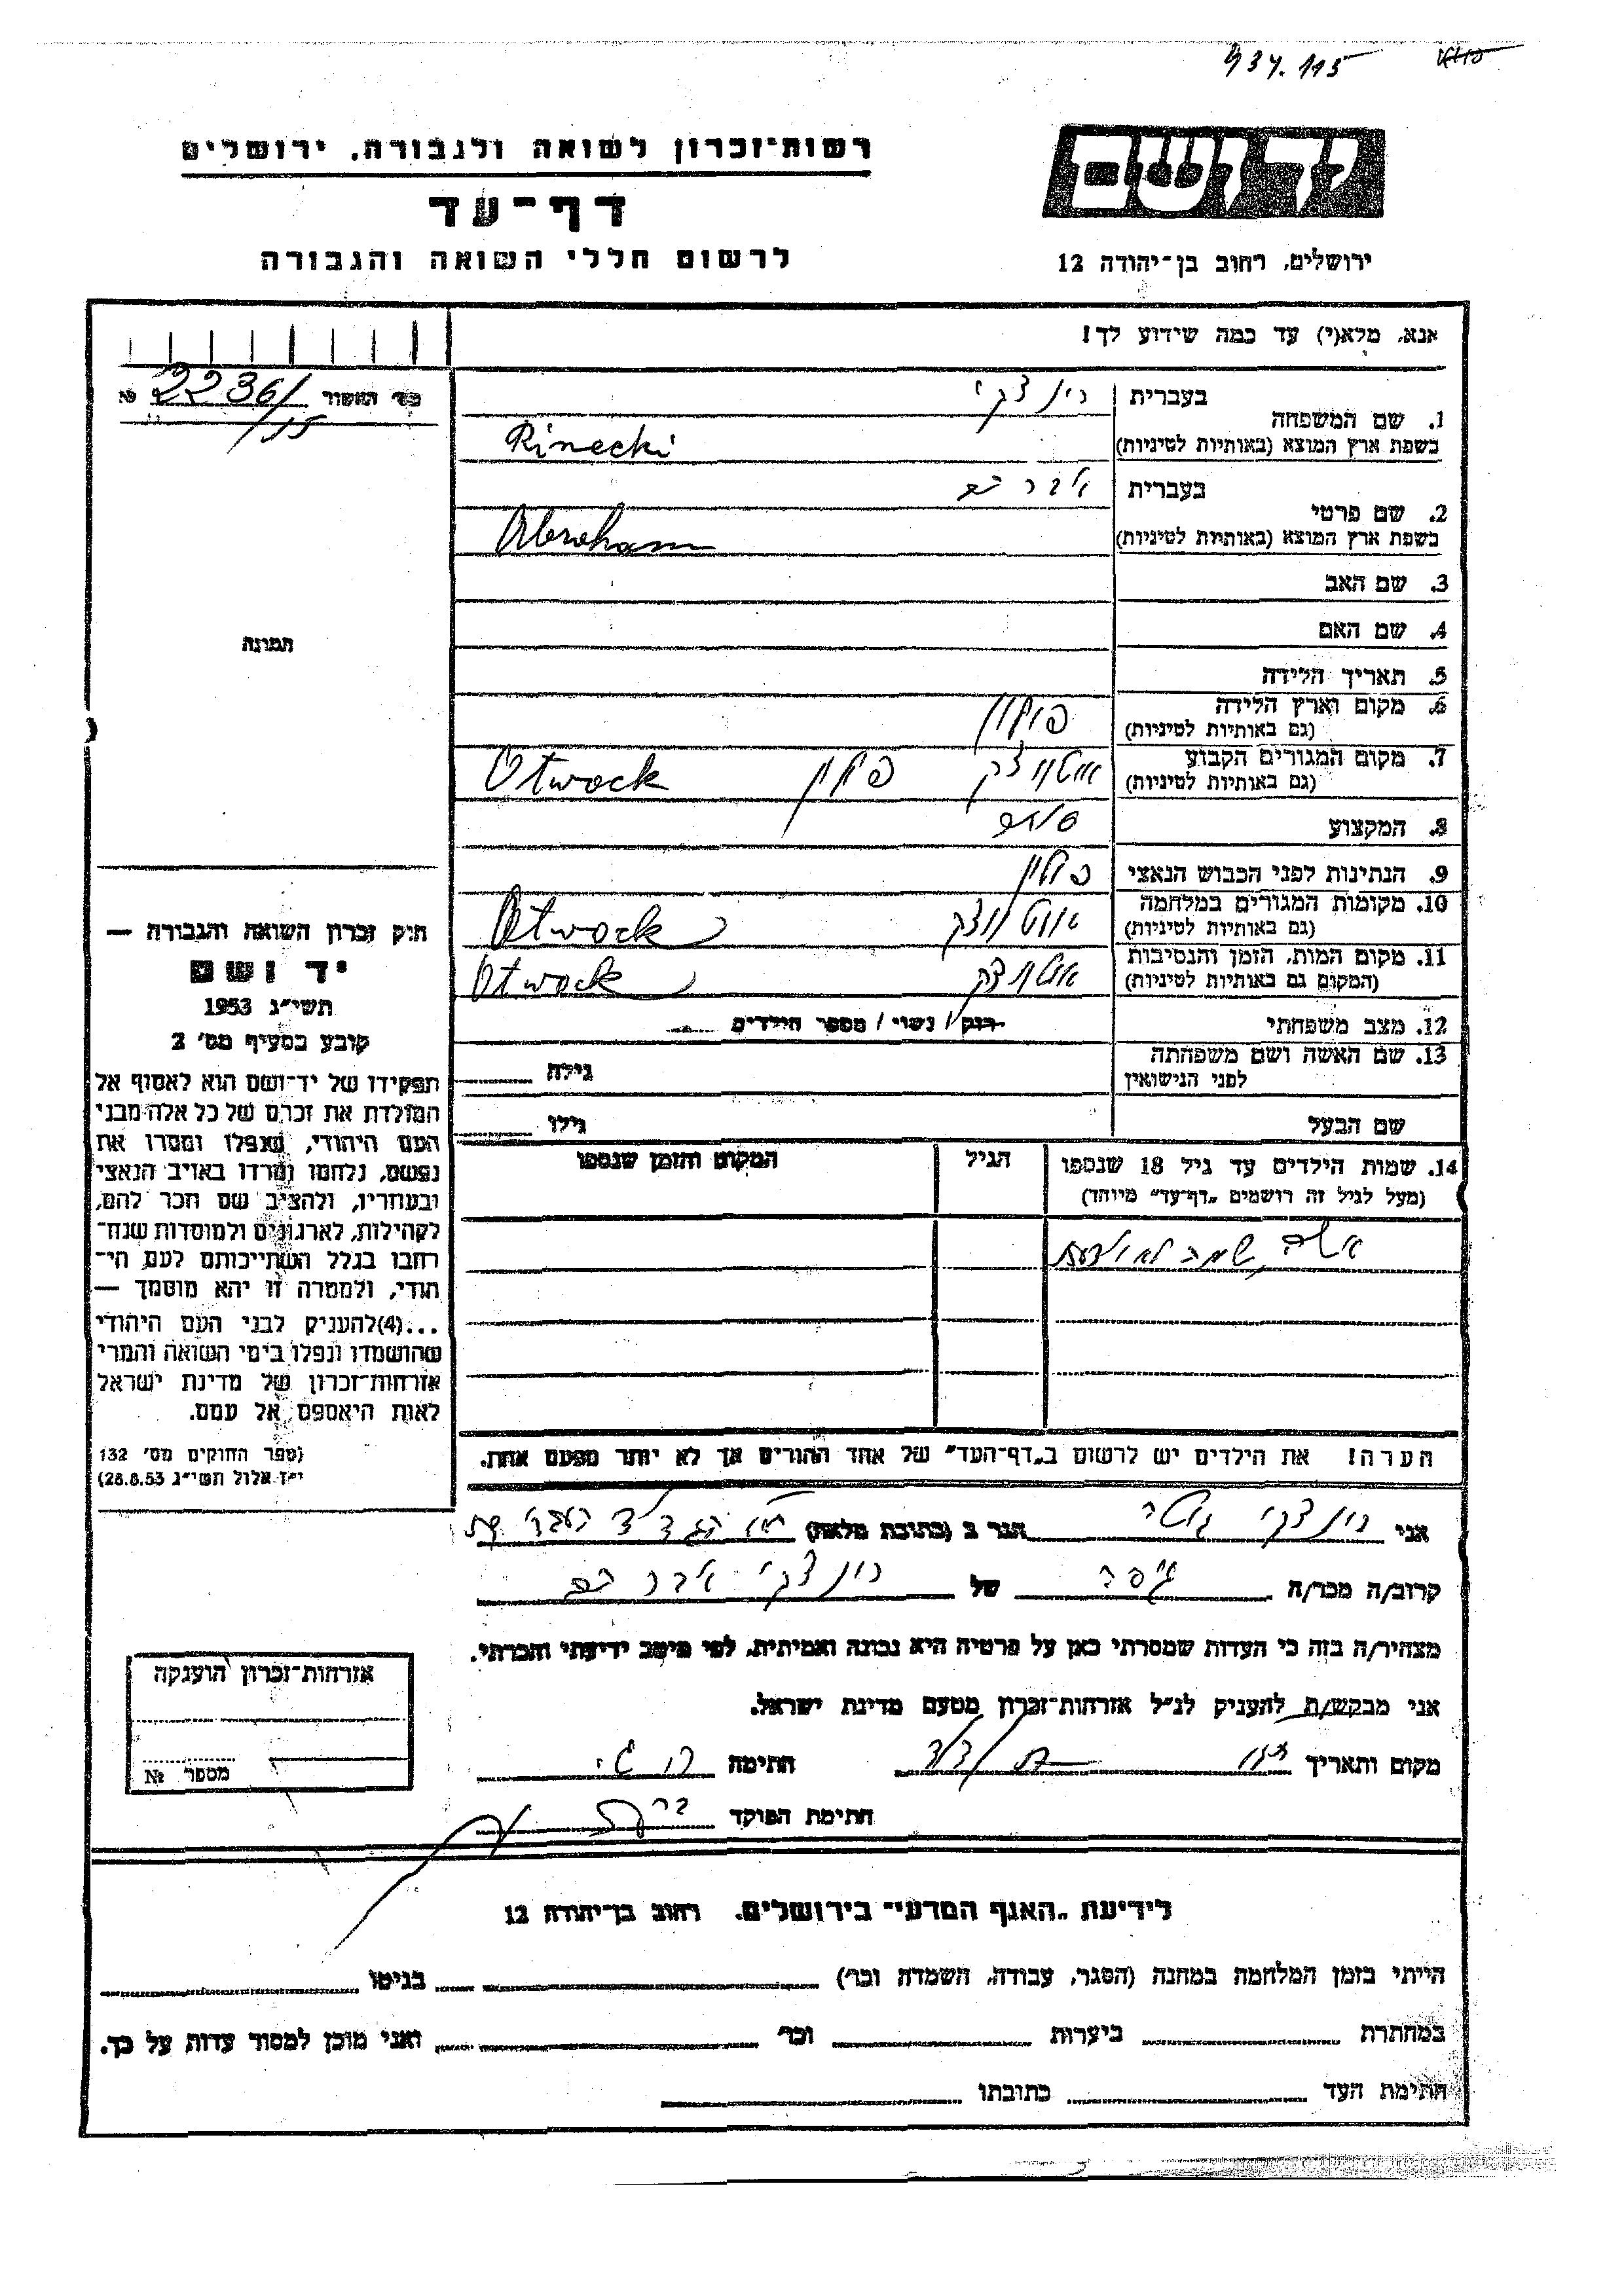 934.115
רשות־זכרון לשואה ולגבורה, ירושלים
דף־עד
לרשום חללי השואה והגבורה
ידושם
ירושלים, רחוב בן־יהודה 12
אנא, מלא(י) עד כמה שידוע לך!
№ 22361
/15
1. שם המשפחה
בעברית רינצקי
בשפת ארץ המוצא (באותיות לטיניות) Rinecki
2. שם פרטי
בעברית אברהם
בשפת ארץ המוצא (באותיות לטיניות) Abraham
3. שם האב
4. שם האם
5. תאריך הלידה
6. מקום וארץ הלידה
(גם באותיות לטיניות) פולין
7. מקום המגורים הקבוע
(גם באותיות לטיניות) אוטווצק פולין Otwock
8. המקצוע
9. הנתינות לפני הכבוש הנאצי פולין
10. מקומות המגורים במלחמה
(גם באותיות לטיניות) אוטווצק Otwock
11. מקום המות, הזמן והנסיבות
(המקום גם באותיות לטיניות) אוטווצק Otwock
12. מצב משפחתי רוק / נשוי / מספר הילדים
13. שם האשה ושם משפחתה
לפני הנישואין גילה
שם הבעל גילו
14. שמות הילדים עד גיל 18 שנספו
(מעל לגיל זה רושמים „דף־עד” מיוחד)
הגיל
המקום והזמן שנספו
הערה! את הילדים יש לרשום ב„דף־העד” של אחד ההורים אך לא יותר מפעם אחת.
תמונה
חוק זכרון השואה והגבורה —
יד ושם
תשי״ג 1953
קובע בסעיף מס׳ 2
תפקידו של יד־ושם הוא לאסוף אל
המולדת את זכרם של כל אלה מבני
העם היהודי, שנפלו ומסרו את
נפשם, נלחמו ומרדו באויב הנאצי
ובעוזריו, ולהציב שם וזכר להם,
לקהילות, לארגונים ולמוסדות שנח־
רבו בגלל השתייכותם לעם הי־
הודי, ולמטרה זו יהא מוסמך —
...(4)להעניק לבני העם היהודי
שהושמדו ונפלו בימי השואה והמרי
אזרחות־זכרון של מדינת ישראל
לאות היאספם אל עמם.
(ספר החוקים מס׳ 132
י״ז אלול תשי״ג 28.8.53)
אני רינצקי הגר ב (כתובת מלאה)
קרוב/ה מכר/ה של רינצקי אברהם
מצהיר/ה בזה כי העדות שמסרתי כאן על פרטיה היא נכונה ואמיתית, לפי מיטב ידיעתי והכרתי.
אני מבקש/ת להעניק לנ״ל אזרחות־זכרון מטעם מדינת ישראל.
מקום ותאריך חתימה
חתימת הפוקד
אזרחות־זכרון הוענקה
מספר №
לידיעת „האגף המדעי” בירושלים, רחוב בן־יהודה 12
הייתי בזמן המלחמה במחנה (הסגר, עבודה, השמדה וכו׳) בגיטו
במחתרת ביערות וכו׳ ואני מוכן למסור עדות על כך.
חתימת העד כתובתו